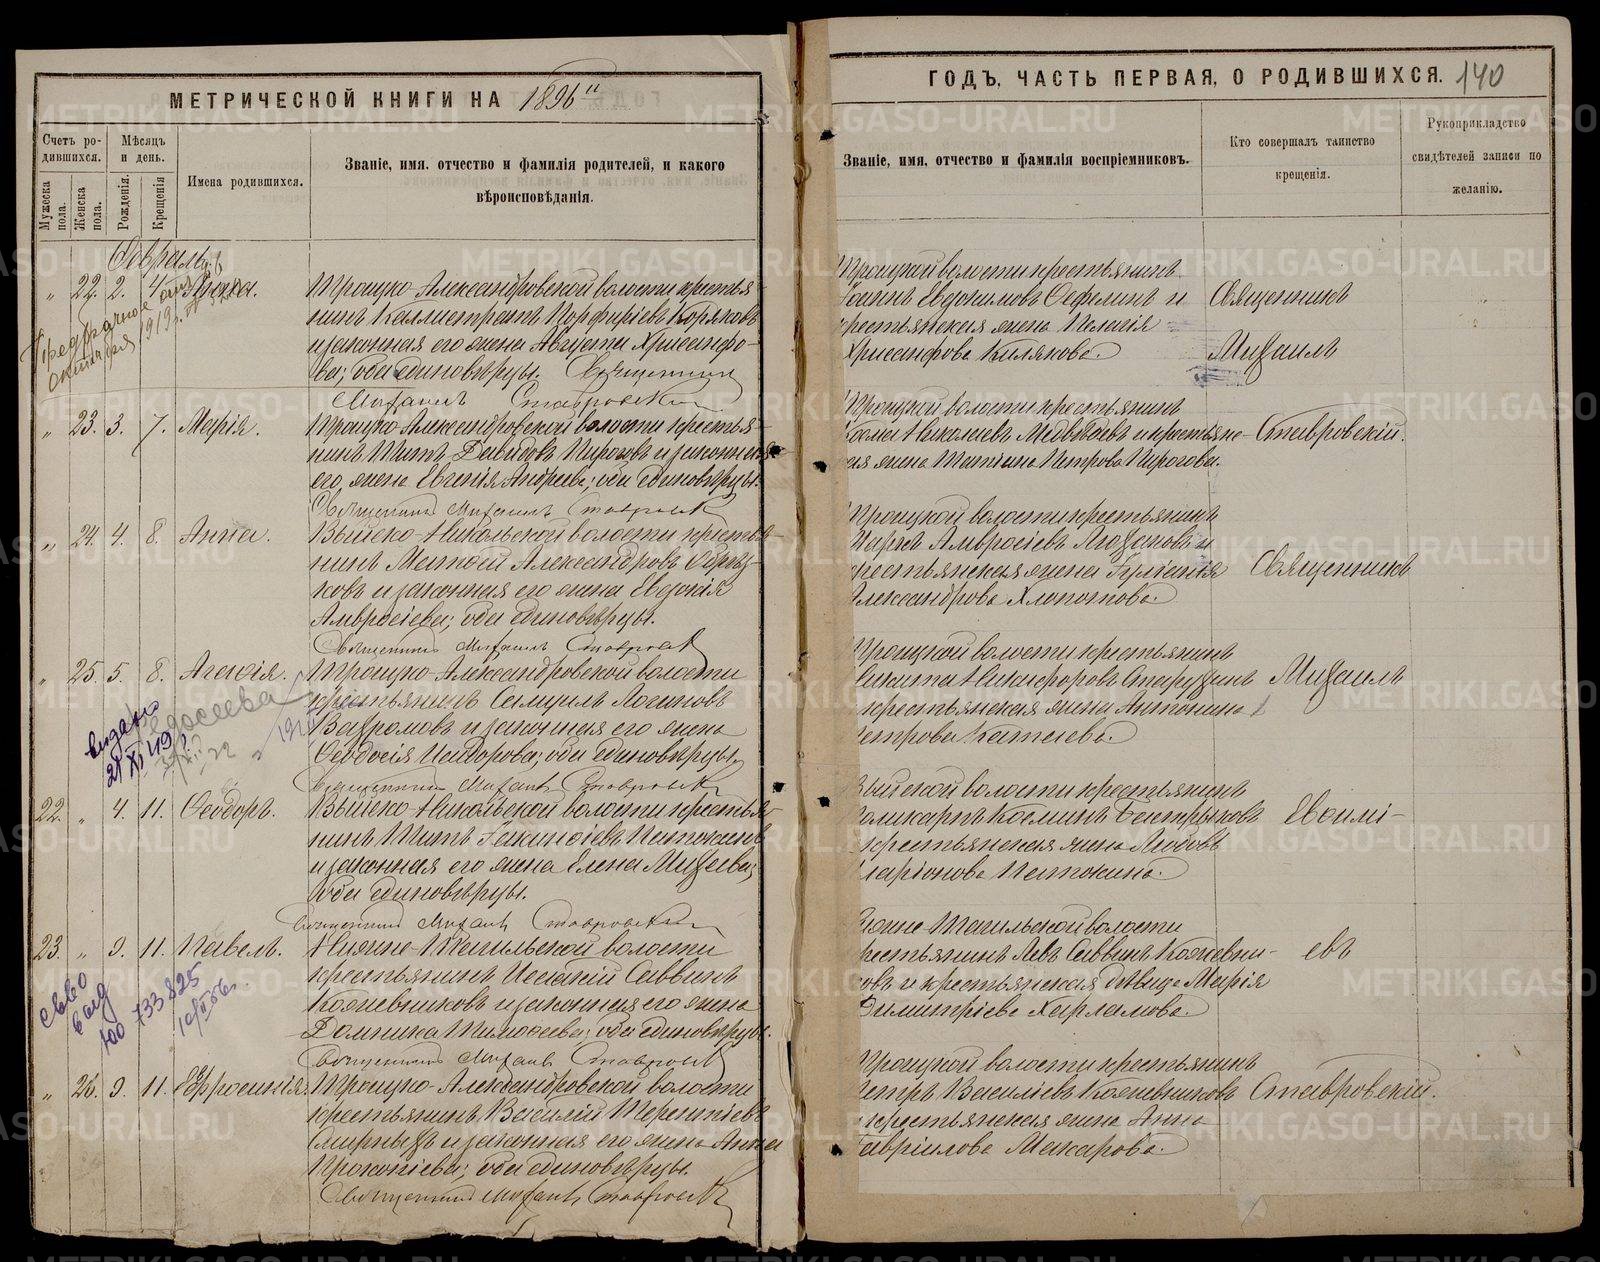 МЕТРИЧЕСКОЙ КНИГИ НА 1896й
Счетъ ро-
дившихся.
Мужеска пола.
Женска пола.
Мѣсяцъ
и день.
Рожденія.
Крещенія
Имена родившихся.
Званіе, имя, отчество и фамилія родителей, и какого
вѣроисповѣданія.
Февраль.
„ 22. 2. 4.
Троицко-Александровской волости крестья-
нинъ Каллистратъ Порфиріевъ Коряковъ
и законная его жена Августа Хрисанфо-
ва; оба единовѣрцы. Священникъ
Михаилъ Ставровскій
„ 23. 3. 7. Марія.
Троицко-Александровской волости крестья-
нинъ Титъ Давидовъ Пироговъ и законная
его жена Евгенія Андреева; оба единовѣрцы.
Священникъ Михаилъ Ставровскій
„ 24. 4. 8. Анна.
Выйско-Никольской волости крестья-
нинъ Матѳей Александровъ
и законная его жена Евдокія
Амвросіева; оба единовѣрцы.
Священникъ Михаилъ Ставровскій
„ 25. 5. 8. Агасія.
Троицко-Александровской волости
крестьянинъ Самуилъ Логиновъ
и законная его жена
Ѳеодосія Исидорова; оба единовѣрцы.
Священникъ Михаилъ Ставровскій
выдано
21 XI 49 г.
22. „ 4. 11. Ѳеодоръ.
Выйско-Никольской волости крестья-
нинъ Титъ
и законная его жена Елена Михеева;
оба единовѣрцы.
Священникъ Михаилъ Ставровскій
23. „ 9. 11. Павелъ.
Нижне-Тагильской волости
крестьянинъ Исакій Саввинъ
Кожевниковъ и законная его жена
Домника Тимоѳеева; оба единовѣрцы.
Священникъ Михаилъ Ставровскій
733825
„ 26. 9. 11. Евфросинія.
Троицко-Александровской волости
крестьянинъ Василій Терентіевъ
Смирныхъ и законная его жена Анна
Прокопіева; оба единовѣрцы.
Священникъ Михаилъ Ставровскій
ГОДЪ, ЧАСТЬ ПЕРВАЯ, О РОДИВШИХСЯ. 140
Званіе, имя, отчество и фамилія воспріемниковъ.
Кто совершалъ таинство
крещенія.
Рукоприкладство
свидѣтелей записи по
желанію.
Троицкой волости крестьянинъ
Іоаннъ Евдокимовъ и
крестьянская жена Пелагія
Хрисанфова Килякова.
Священникъ
Михаилъ
Троицкой волости крестьянинъ
Николаевъ Медвѣдевъ и крестьян-
ская жена Татіана Петрова Пирогова.
Ставровскій.
Троицкой волости крестьянинъ
Маркъ Амвросіевъ и
крестьянская жена Іуліанія
Александрова Хлопотова.
Священникъ
Троицкой волости крестьянинъ
Никита Никифоровъ Старухинъ
и крестьянская жена Антонина
Петрова Катаева.
Михаилъ
Выйской волости крестьянинъ
Поликарпъ Косминъ
и крестьянская жена Любовь
Иларіонова
Евоилі-
Нижне-Тагильской волости
крестьянинъ Левъ Саввинъ Кожевни-
ковъ и крестьянская дѣвица Марія
Димитріева Харламова.
евъ
Троицкой волости крестьянинъ
Петръ Василіевъ Кожевниковъ
и крестьянская жена Анна
Гавріилова Макарова.
Ставровскій.
METRIKI.GASO-URAL.RU